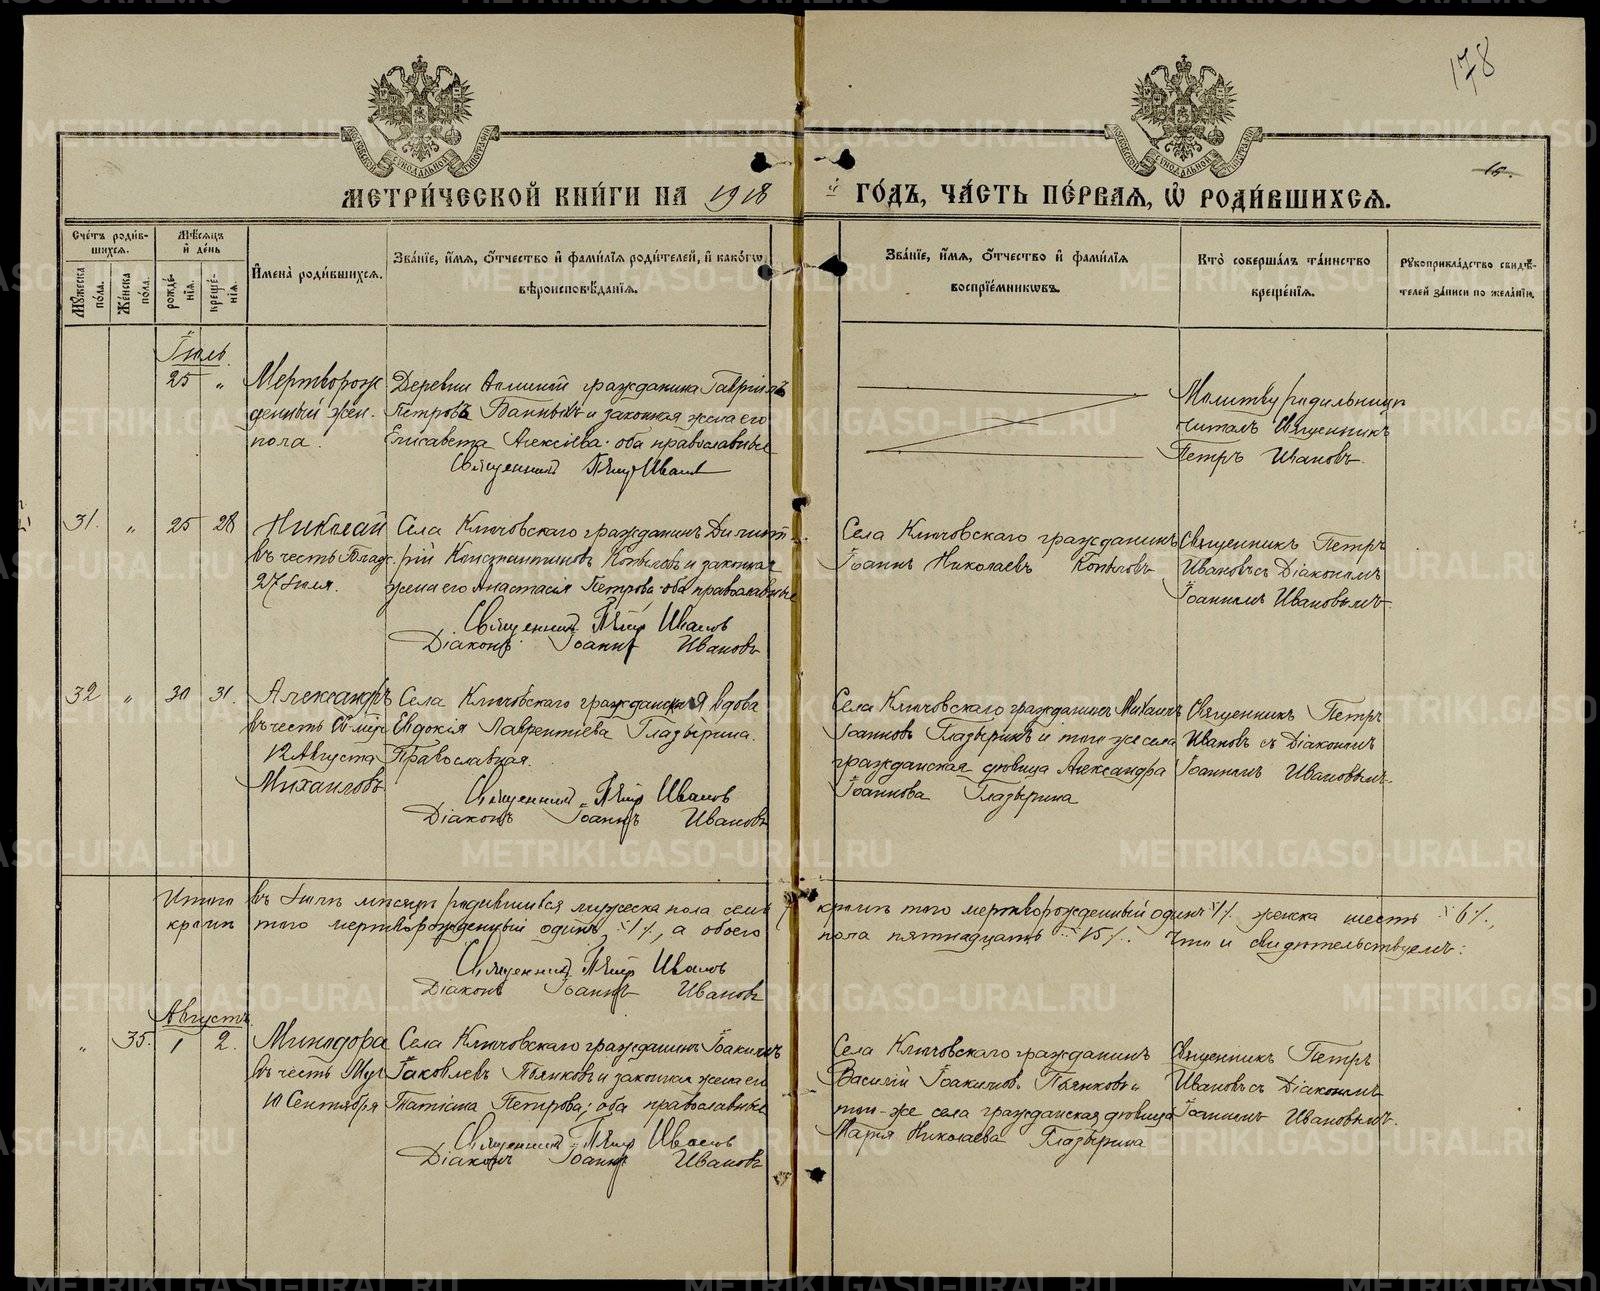 178
15.
МЕТРИ́ЧЕСКОЙ КНИ́ГИ НА 1918 й ГО́ДЪ, ЧА́СТЬ ПЕ́РВАЯ, Ѡ РОДИ́ВШИХСЯ.
Сче́тъ роди́в-
шихся.
Мꙋ́жеска по́ла.
Же́нска по́ла.
Мѣ́сяцъ
и҆ де́нь
рожде́-
нїѧ.
креще́-
нїѧ.
И҆мена̀ роди́вшихсѧ.
Зва́нїе, и҆́мѧ, ѻ҆́тчество и҆ фами́лїѧ роди́телей, и҆ како́гѡ
вѣроисповѣ́данїѧ.
Зва́нїе, и҆́мѧ, ѻ҆́тчество и҆ фами́лїѧ
воспрїе́мникѡвъ.
Кто̀ соверша́лъ та́инство
креще́нїѧ.
Рꙋкоприкла́дство свидѣ́-
телей за́писи по жела́нїю.
Іюль.
25 „ Мертворож
денный жен.
пола.
Деревни гражданинъ Гавріилъ
Петровъ Банныхъ и законная жена его
Елисавета Алексіева. оба православные
Священникъ Петръ Ивановъ
Молитву родильницы
читалъ Священникъ
Петръ Ивановъ.
31. „ 25 28 Николай
въ честь
27 Іюля.
Села Ключовскаго гражданинъ Димит
рій Константиновъ Копыловъ и законная
жена его Анастасія Петрова. оба православные
Священникъ Петръ Ивановъ
Діаконъ Іоаннъ Ивановъ
Села Ключовскаго гражданинъ
Іоаннъ Николаевъ Копыловъ
Священникъ Петръ
Ивановъ съ Діакономъ
Іоанномъ Ивановымъ.
32 „ 30 31. Александръ
въ честь Св. муч.
12 Августа
Михаиловъ
Села Ключовскаго гражданская вдова
Евдокія Лаврентіева Глазырина.
Православная.
Священникъ Петръ Ивановъ
Діаконъ Іоаннъ Ивановъ
Села Ключовскаго гражданинъ Михаилъ
Іоанновъ Глазыринъ и того-же села
гражданская дѣвица Александра
Іоаннова Глазырина
Священникъ Петръ
Ивановъ съ Діакономъ
Іоанномъ Ивановымъ.
Итого въ Іюлѣ мѣсяцѣ родившихся мужеска пола семь 7 кромѣ того мертворожденный одинъ 1/., женска шесть 6/.,
кромѣ того мертворожденный одинъ 1/., а обоего пола пятнадцать 15/. Что и свидѣтельствуемъ:
Священникъ Петръ Ивановъ
Діаконъ Іоаннъ Ивановъ
Августъ.
„ 35. 1 2. Минодора
въ честь Муч
10 Сентября
Села Ключовскаго гражданинъ Іоакимъ
Іаковлевъ Пьянковъ и законная жена его
Татіана Петрова; оба православные
Священникъ Петръ Ивановъ
Діаконъ Іоаннъ Ивановъ
Села Ключовскаго гражданинъ
Василій Іоакимовъ Пьянковъ и
того-же села гражданская дѣвица
Марія Николаева Глазырина
Священникъ Петръ
Ивановъ съ Діакономъ
Іоанномъ Ивановымъ.
METRIKI.GASO-URAL.RU